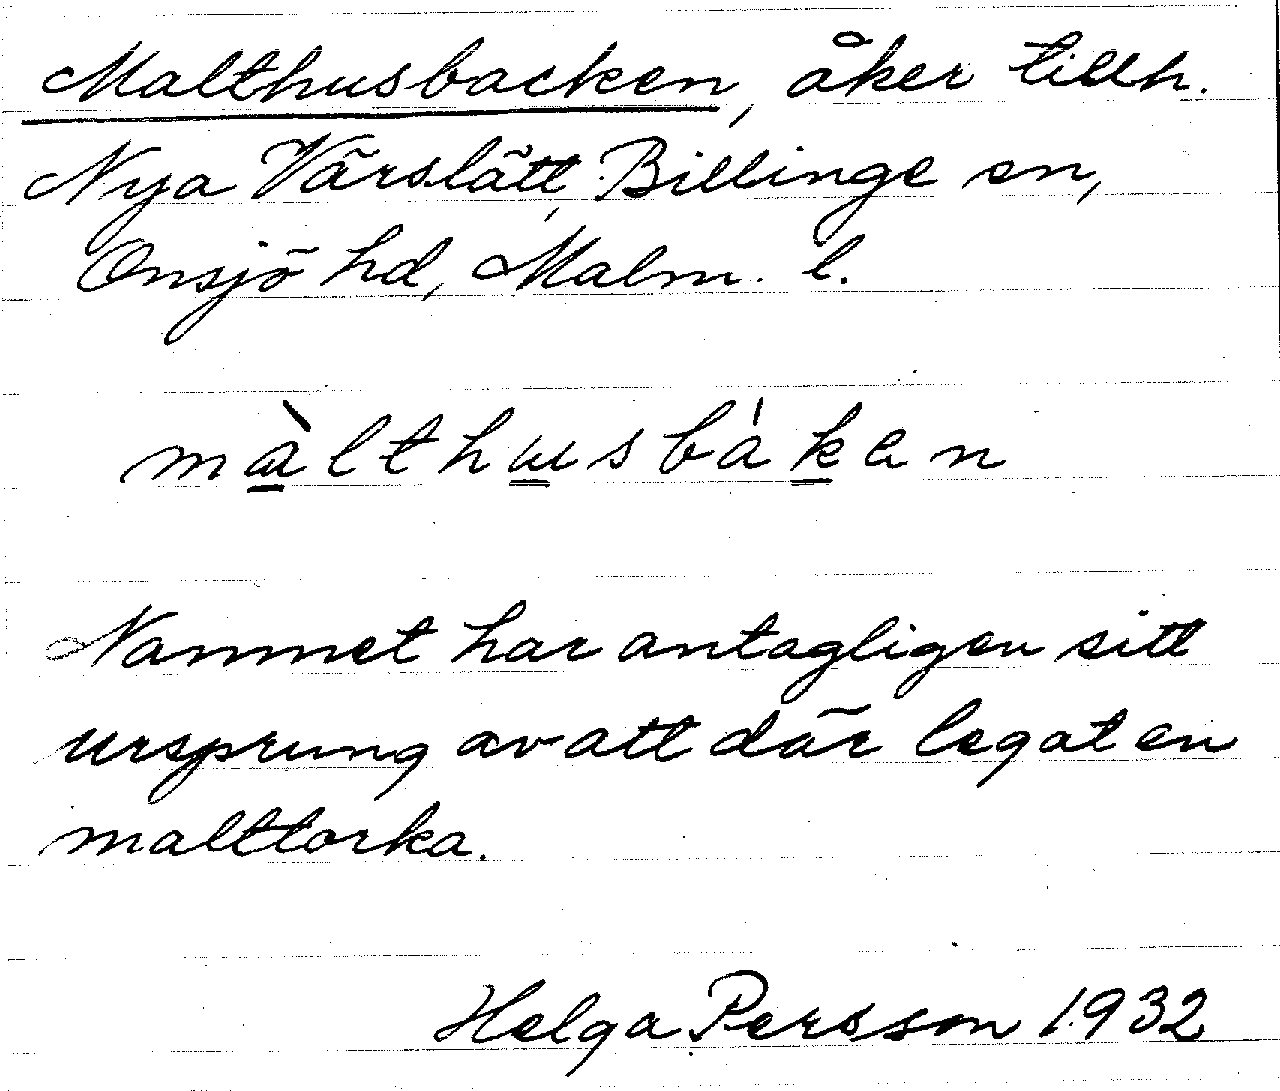 Malthusbacken, åker tillh.
Nya Värslätt, Billinge sn,
Onsjö hd, Malm. l.
màlthusbáken
Namnet har antagligen sitt
ursprung av att där legat en
malttorka.
Helga Persson 1932